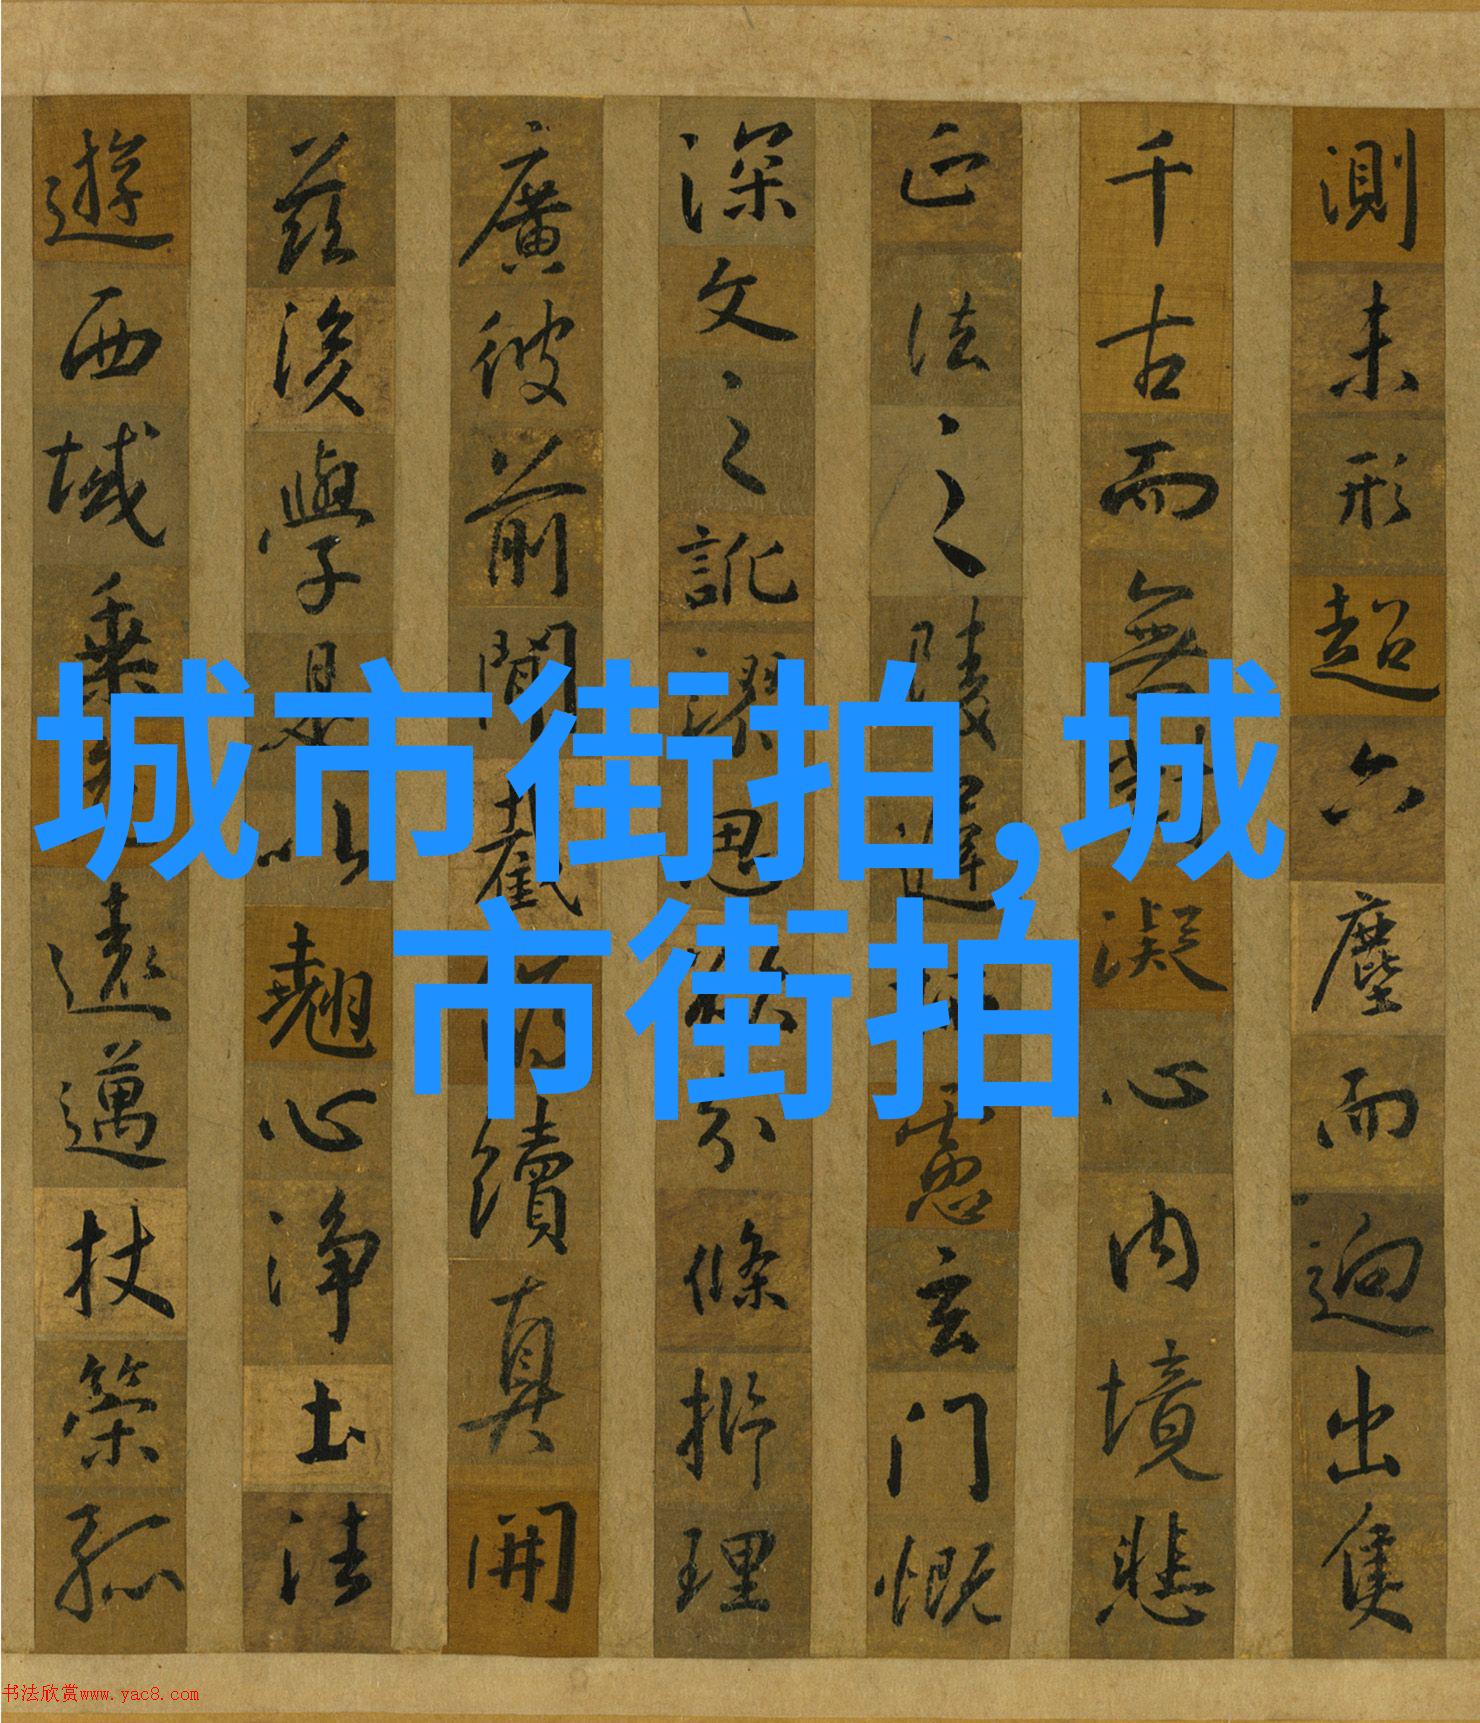 城市街拍,城
市街拍
測未形超六塵而迥出隻
千古而無對凝心內境悲
正法之陵遲慮玄門慨
深文之訛謬思欲分條析理
廣彼前聞截續真開
茲後學是以翹心淨土法
遊西域乘遠邁杖策孤
书法欣赏www.yac8.com